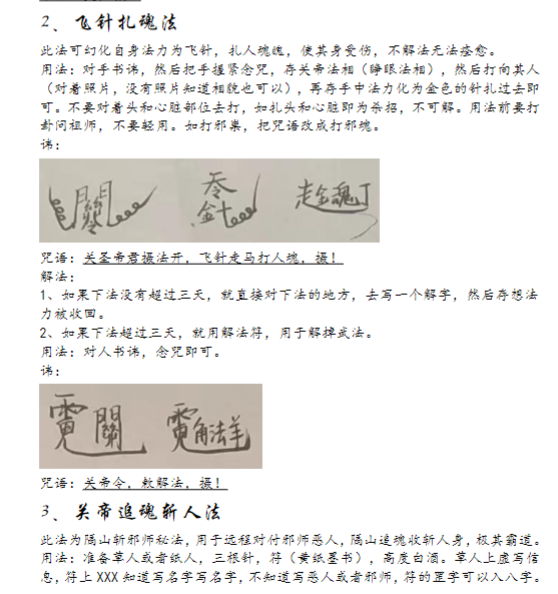 2、飞针扎魂法
此法可幻化自身法力为飞针，扎人魂魄，使其身受伤，不解法无法痊愈。
用法：对手书讳，然后把手握紧念咒，存关帝法相（睁眼法相），然后打向其人
（对着照片，没有照片知道相貌也可以），再存手中法力化为金色的针扎过去即
可。不要对着头和心脏部位去打，如扎头和心脏即为杀招，不可解。用法前要打
卦问祖师，不要轻用。如打邪祟，把咒语改成打邪魂。
讳：
咒语：关圣帝君摄法开，飞针走马打人魂，摄！
解法：
1、如果下法没有超过三天，就直接对下法的地方，去写一个解字，然后存想法
力被收回。
2、如果下法超过三天，就用解法符，用于解掉武法。
用法：对人书讳，念咒即可。
讳：
咒语：关帝令，敕解法，摄！
3、关帝追魂斩人法
此法为隔山斩邪师秘法，用于远程对付邪师恶人，隔山追魂收斩人身，极其霸道。
用法：准备草人或者纸人，三根针，符（黄纸墨书），高度白酒。草人上虚写信
息，符上XXX知道写名字写名字，不知道写恶人或者邪师，符的罡字可以入八字。